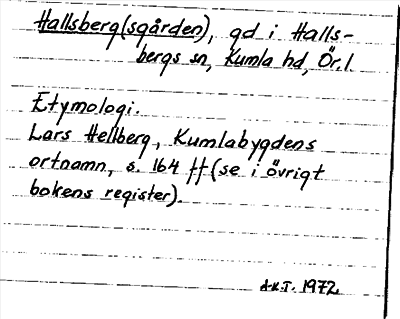 Hallsberg(sgården), gd i Halls-
bergs sn, Kumla hd, Ör.l.
Etymologi.
Lars Hellberg, Kumlabygdens
ortnamn, s. 164 ff (se i övrigt
bokens register).
1972